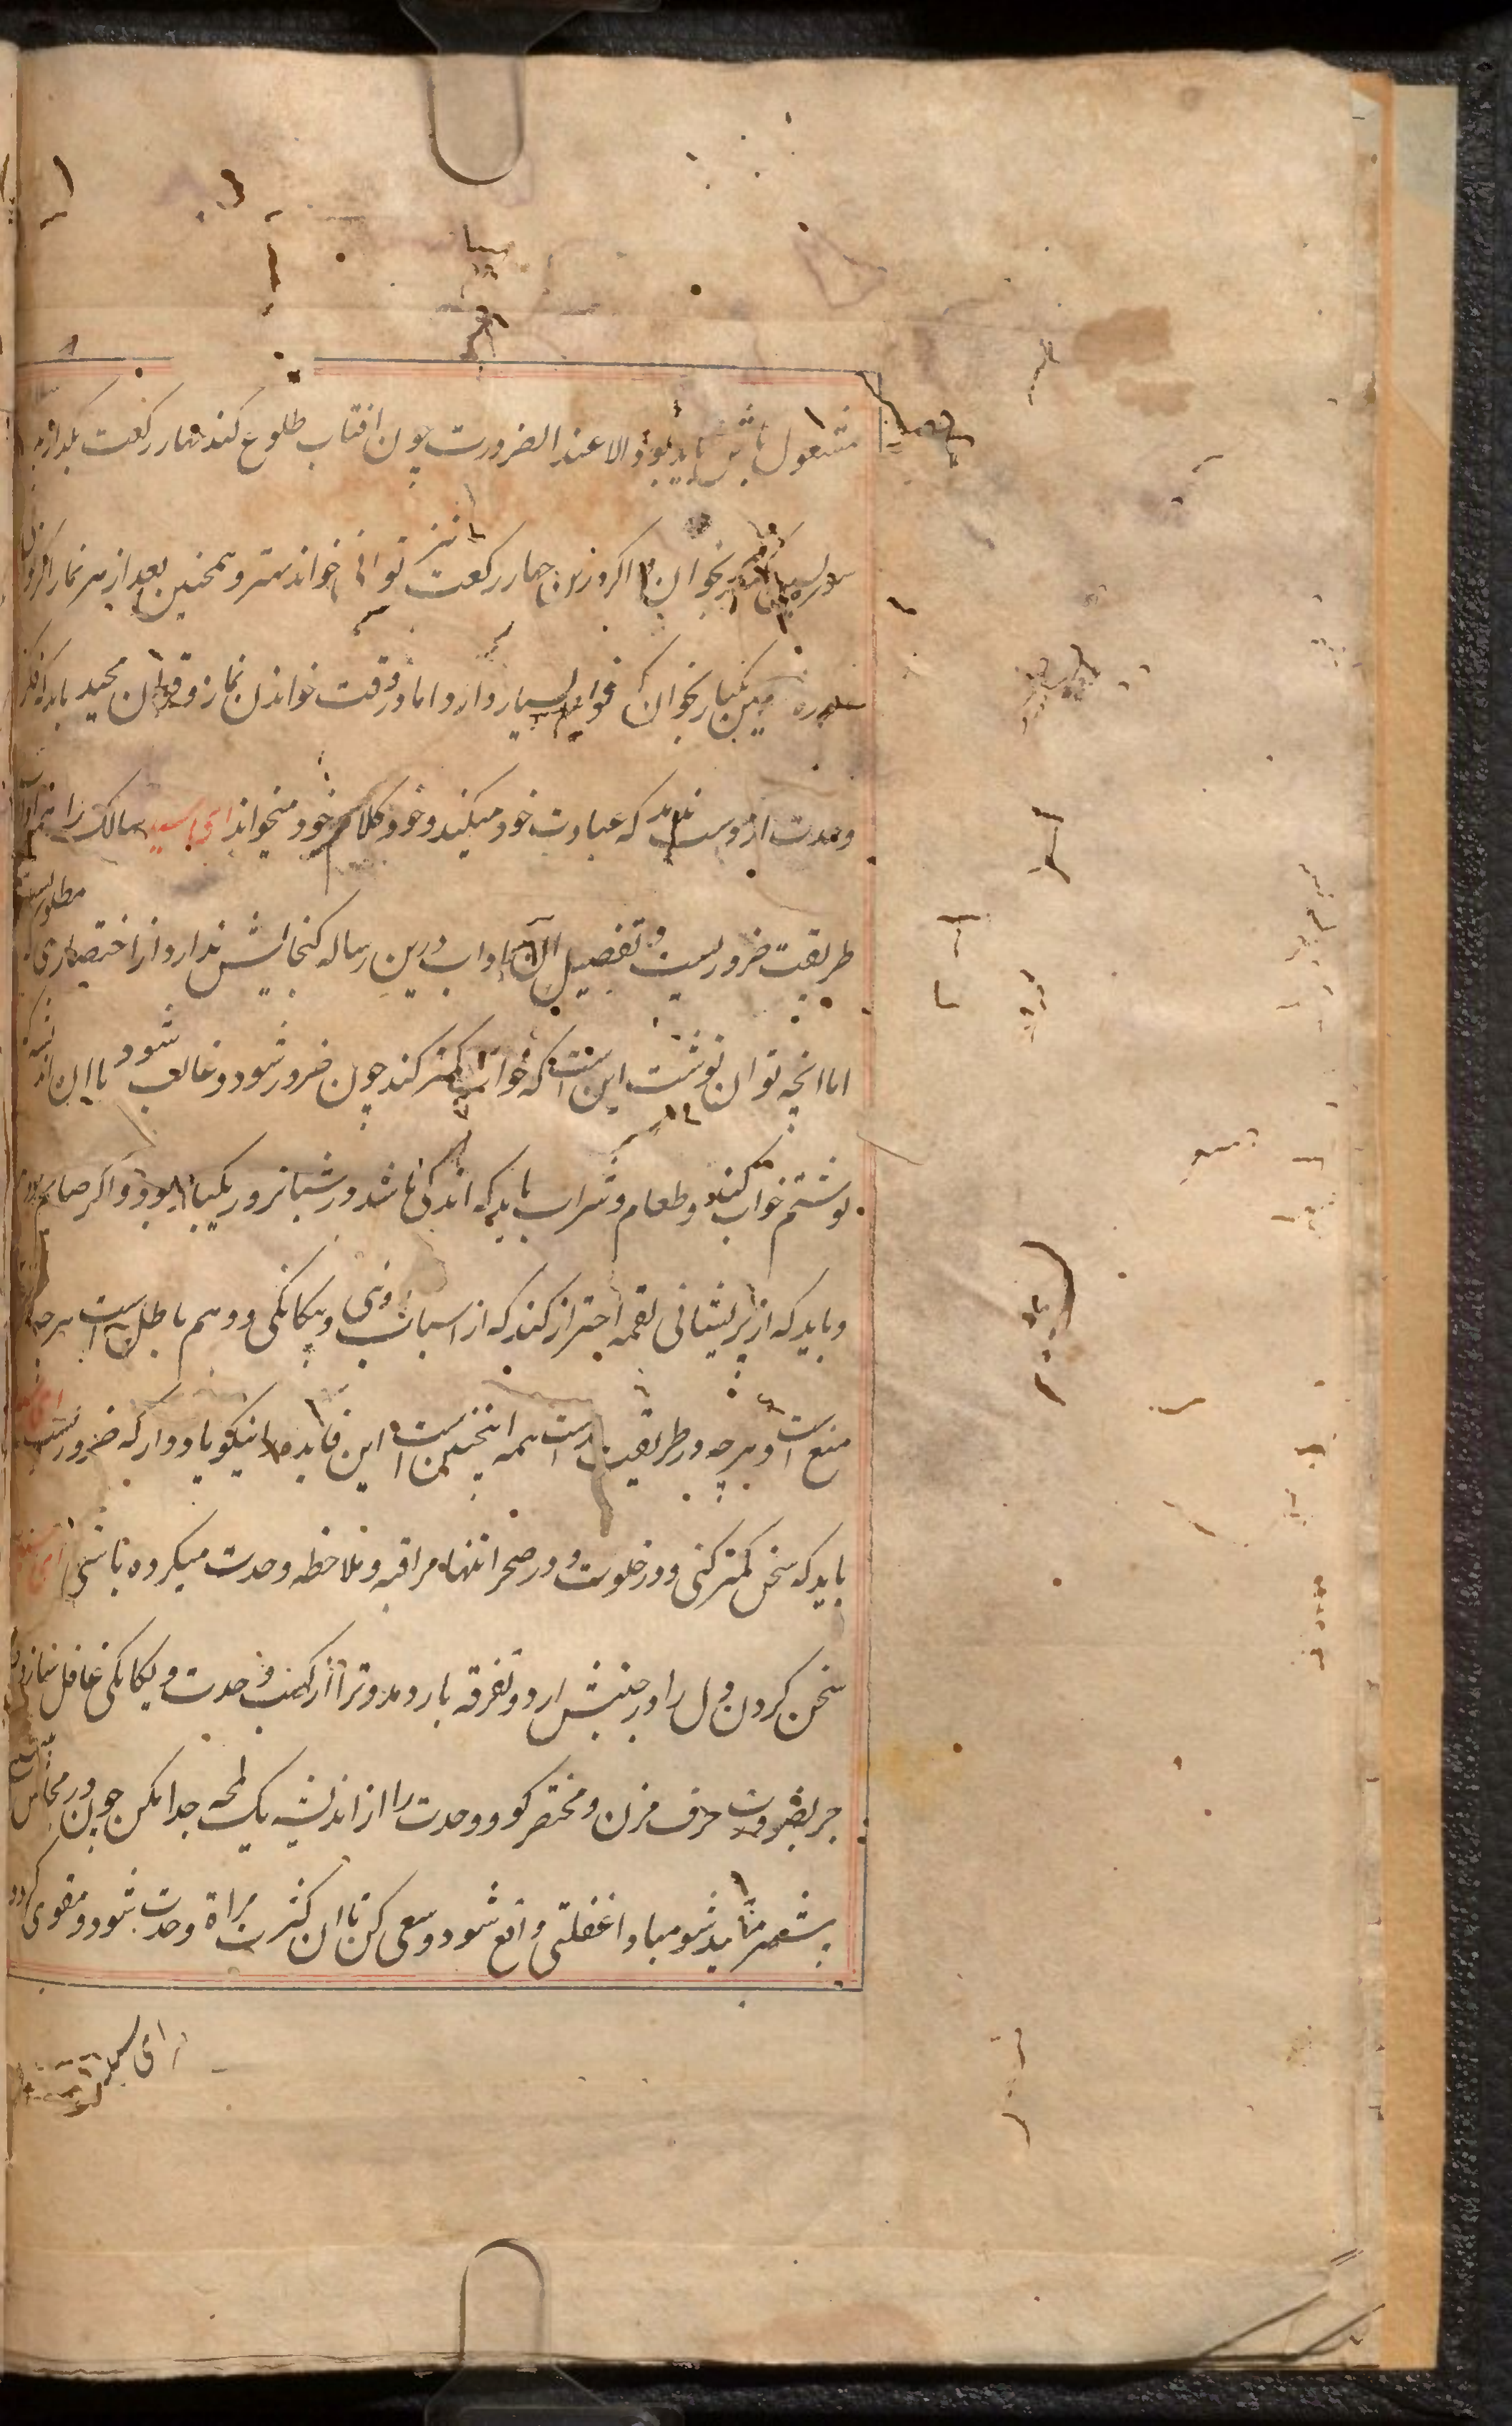 مشغول باش باید بود الا عند الضرورت چون افتاب طلوع کند چهار رکعت بگذار به
سوره یس بخوان اکر وزین چهار رکعت نیز توانی خواند بهتر و همچنین بعد از هر نماز اکر توانی
سوره یس یکبار بخوان که فواید بسیار دارد اما در وقت خواندن نماز و قران مجید باید که فکر
وحدت از دست ندهد که عبادت خود میکند و خود کلام خود میخواند ای سید سالک را اداب
طریقت ضروریست و تفصیل آن اداب درین رساله کنجایش ندارد از اختصار مطلوبست
اما انچه توان نوشت این است که خواب کمتر کند چون ضرور شود و غالب شود با این اندیشه که
نوشتم خواب کند و طعام و شراب باید که اندک باشد در شبانروز یکبار بود و اکر صایم بود
و باید که از پریشانی لقمه احتراز کند که از اسباب دوئی و بیکانکی و وهم باطل است هرچه
منع است و هرچه در طریقت است همه اینچنین است این فایده را نیکو یاد دار که ضروریست ای سید
باید که سخن کمتر کنی و در خلوت و در صحرا تنها مراقبه و ملاحظه وحدت میکرده باشی ای سید
سخن کردن دل را در جنبش ارد و تفرقه بار دهد و ترا از کهف وحدت و یکانکی غافل سازد
جز بضرورت حرف مزن و مختصر کو و وحدت را از اندیشه یک لمحه جدا مکن چون در مجالس
شو مبادا غفلتی واقع شود و سعی کن تا ان کثرت مراة وحدت شود و مقوی کردد
ای سید